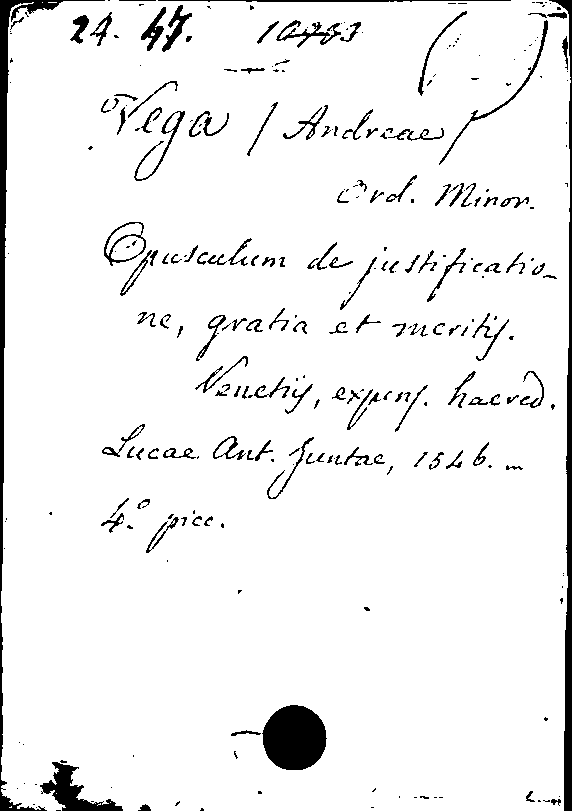 24. 47. 10763
Vega / Andreae /
Ord. Minor.
Opusculum de justificatio-
ne, gratia et meritis.
Venetiis, expens. haered.
Lucae Ant. Juntae, 1546. in
4.º picc.